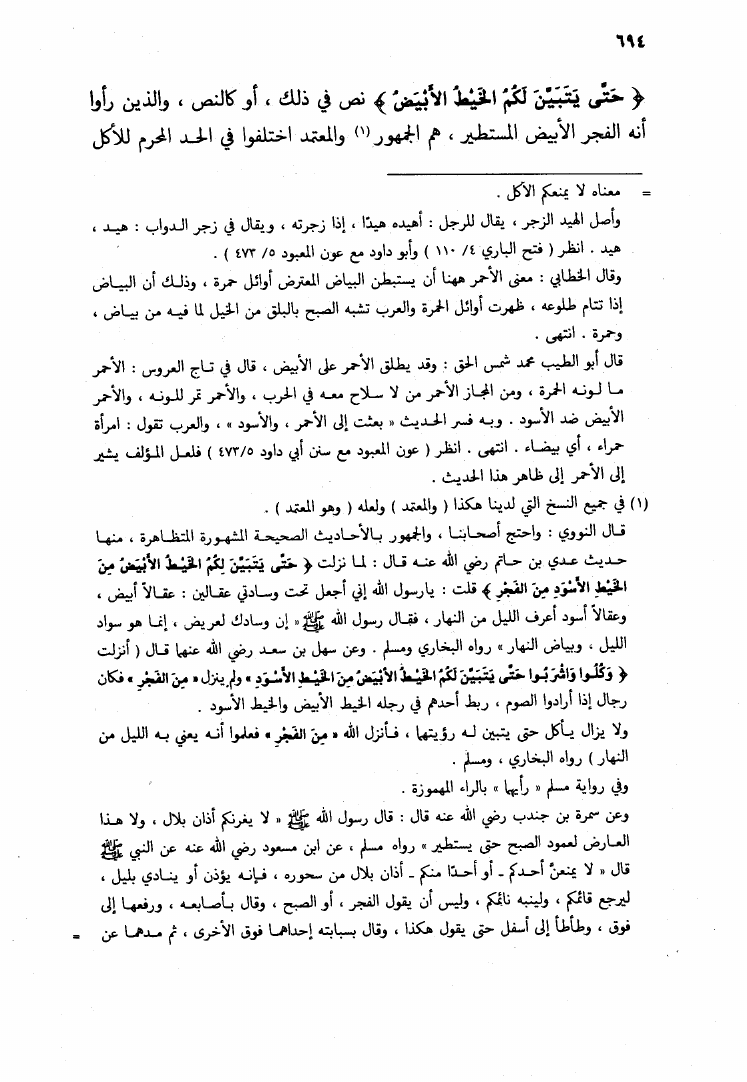 ٦٩٤
﴿ حَتَّى يَتَبَيَّنَ لَكُمُ الخَيْطُ الأَبْيَضُ ﴾ نص في ذلك ، أو كالنص ، والذين رأوا
أنه الفجر الأبيض المستطير ، هم الجمهور(١) والمعتمد اختلفوا في الحد المحرم للأكل
= معناه لا يمنعكم الأكل .
وأصل الهيد الزجر ، يقال للرجل : أهيده هيدًا ، إذا زجرته ، ويقال في زجر الدواب : هيد ،
هيد . انظر ( فتح الباري ٤/ ١١٠ ) وأبو داود مع عون المعبود ٥/ ٤٧٣ ) .
وقال الخطابي : معنى الأحمر ههنا أن يستبطن البياض المعترض أوائل حمرة ، وذلك أن البياض
إذا تتام طلوعه ، ظهرت أوائل الحمرة والعرب تشبه الصبح بالبلق من الخيل لما فيه من بياض ،
وحمرة . انتهى .
قال أبو الطيب محمد شمس الحق : وقد يطلق الأحمر على الأبيض ، قال في تاج العروس : الأحمر
ما لونه الحمرة ، ومن المجاز الأحمر من لا سلاح معه في الحرب ، والأحمر تمر للونه ، والأحمر
الأبيض ضد الأسود . وبه فسر الحديث « بعثت إلى الأحمر ، والأسود » ، والعرب تقول : امرأة
حمراء ، أي بيضاء . انتهى . انظر ( عون المعبود مع سنن أبي داود ٤٧٣/٥ ) فلعل المؤلف يشير
إلى الأحمر إلى ظاهر هذا الحديث .
(١) في جميع النسخ التي لدينا هكذا ( والمعتمد ) ولعله ( وهو المعتمد ) .
قال النووي : واحتج أصحابنا ، والجمهور بالأحاديث الصحيحة المشهورة المتظاهرة ، منها
حديث عدي بن حاتم رضي الله عنه قال : لما نزلت ﴿ حَتَّى يَتَبَيَّنَ لَكُمُ الخَيْطُ الأَبْيَضُ مِنَ
الخَيْطِ الأَسْوَدِ مِنَ الفَجْرِ ﴾ قلت : يارسول الله إني أجعل تحت وسادتي عقالين : عقالاً أبيض ،
وعقالاً أسود أعرف الليل من النهار ، فقال رسول الله ﷺ « إن وسادك لعريض ، إنما هو سواد
الليل ، وبياض النهار » رواه البخاري ومسلم . وعن سهل بن سعد رضي الله عنهما قال ( أنزلت
﴿ وَكُلُوا وَاشْرَبُوا حَتَّى يَتَبَيَّنَ لَكُمُ الخَيْطُ الأَبْيَضُ مِنَ الخَيْطِ الأَسْوَدِ » ولم ينزل « مِنَ الفَجْرِ » فكان
رجال إذا أرادوا الصوم ، ربط أحدهم في رجله الخيط الأبيض والخيط الأسود .
ولا يزال يأكل حتى يتبين له رؤيتهما ، فأنزل الله « مِنَ الفَجْرِ » فعلموا أنه يعني به الليل من
النهار ) رواه البخاري ، ومسلم .
وفي رواية مسلم « رأيهما » بالراء المهموزة .
وعن سمرة بن جندب رضي الله عنه قال : قال رسول الله ﷺ « لا يغرنكم أذان بلال ، ولا هذا
العارض لعمود الصبح حتى يستطير » رواه مسلم ، عن ابن مسعود رضي الله عنه عن النبي ﷺ
قال « لا يمنعنَّ أحدكم ـ أو أحدًا منكم ـ أذان بلال من سحوره ، فإنه يؤذن أو ينادي بليل ،
ليرجع قائمكم ، ولينبه نائمكم ، وليس أن يقول الفجر ، أو الصبح ، وقال بأصابعه ، ورفعها إلى
فوق ، وطأطأ إلى أسفل حتى يقول هكذا ، وقال بسبابته إحداهما فوق الأخرى ، ثم مدهما عن =